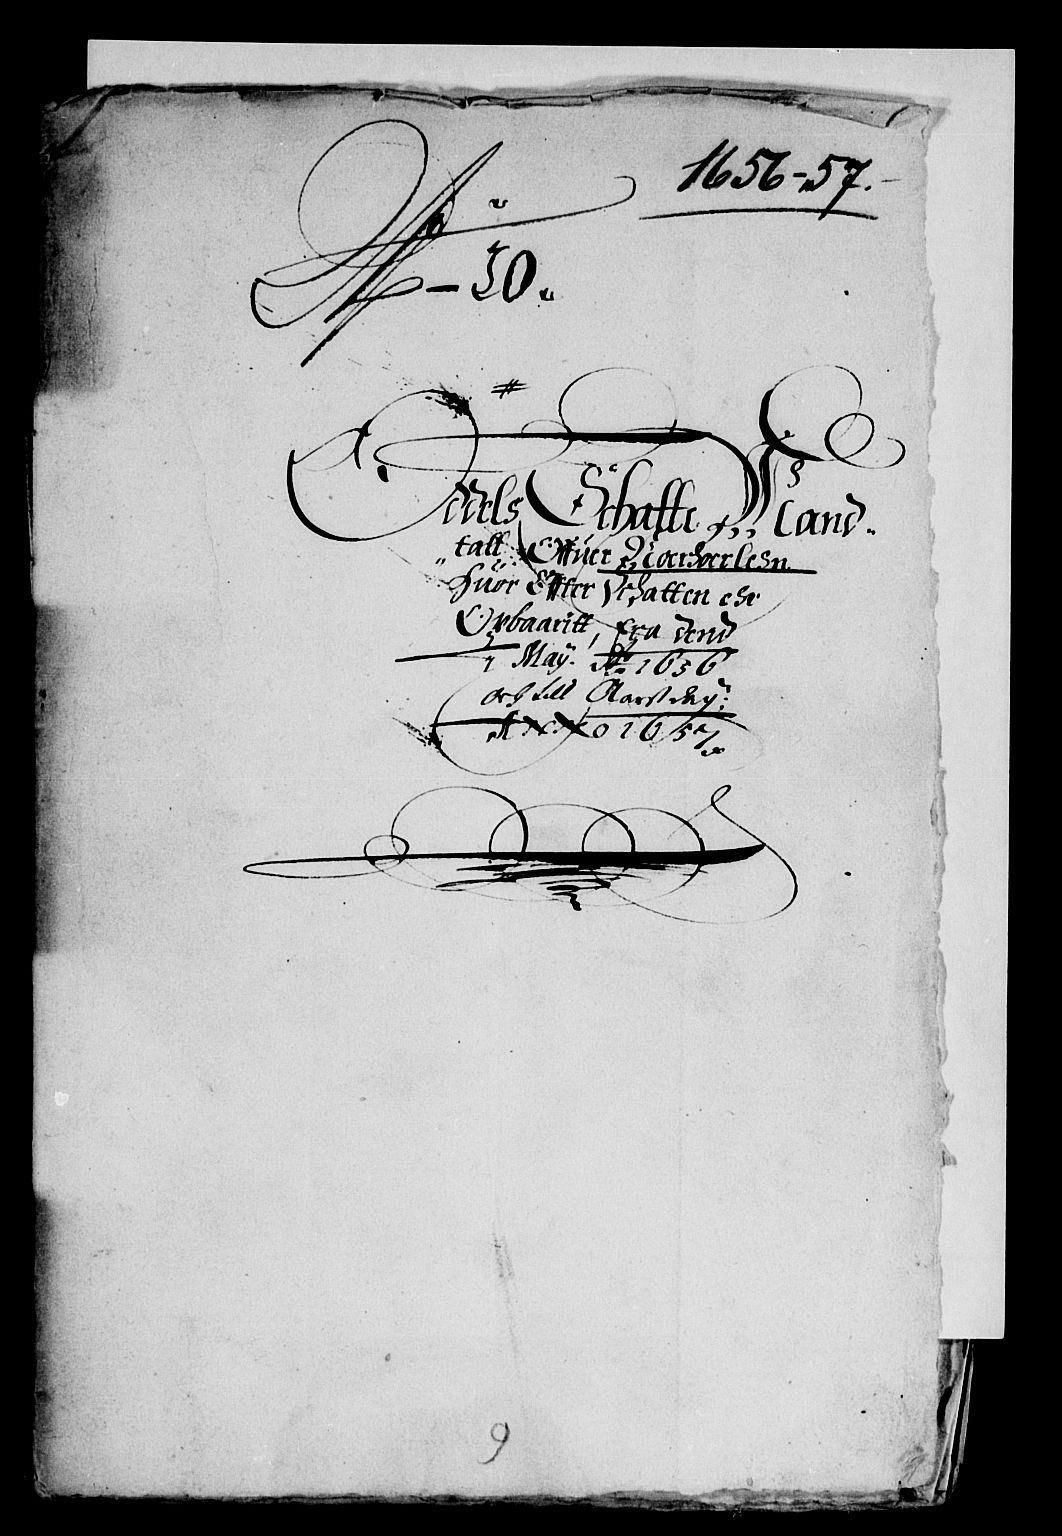 1656-57.
N - 30.
Oddels Schatte Mand-
tall, Offuer Nordhorlehn
huor Effter Schatten ehr
Opbaaritt, fra dend
1 May. Ao 1656
och till Aarst dag:
Anno 1657
9